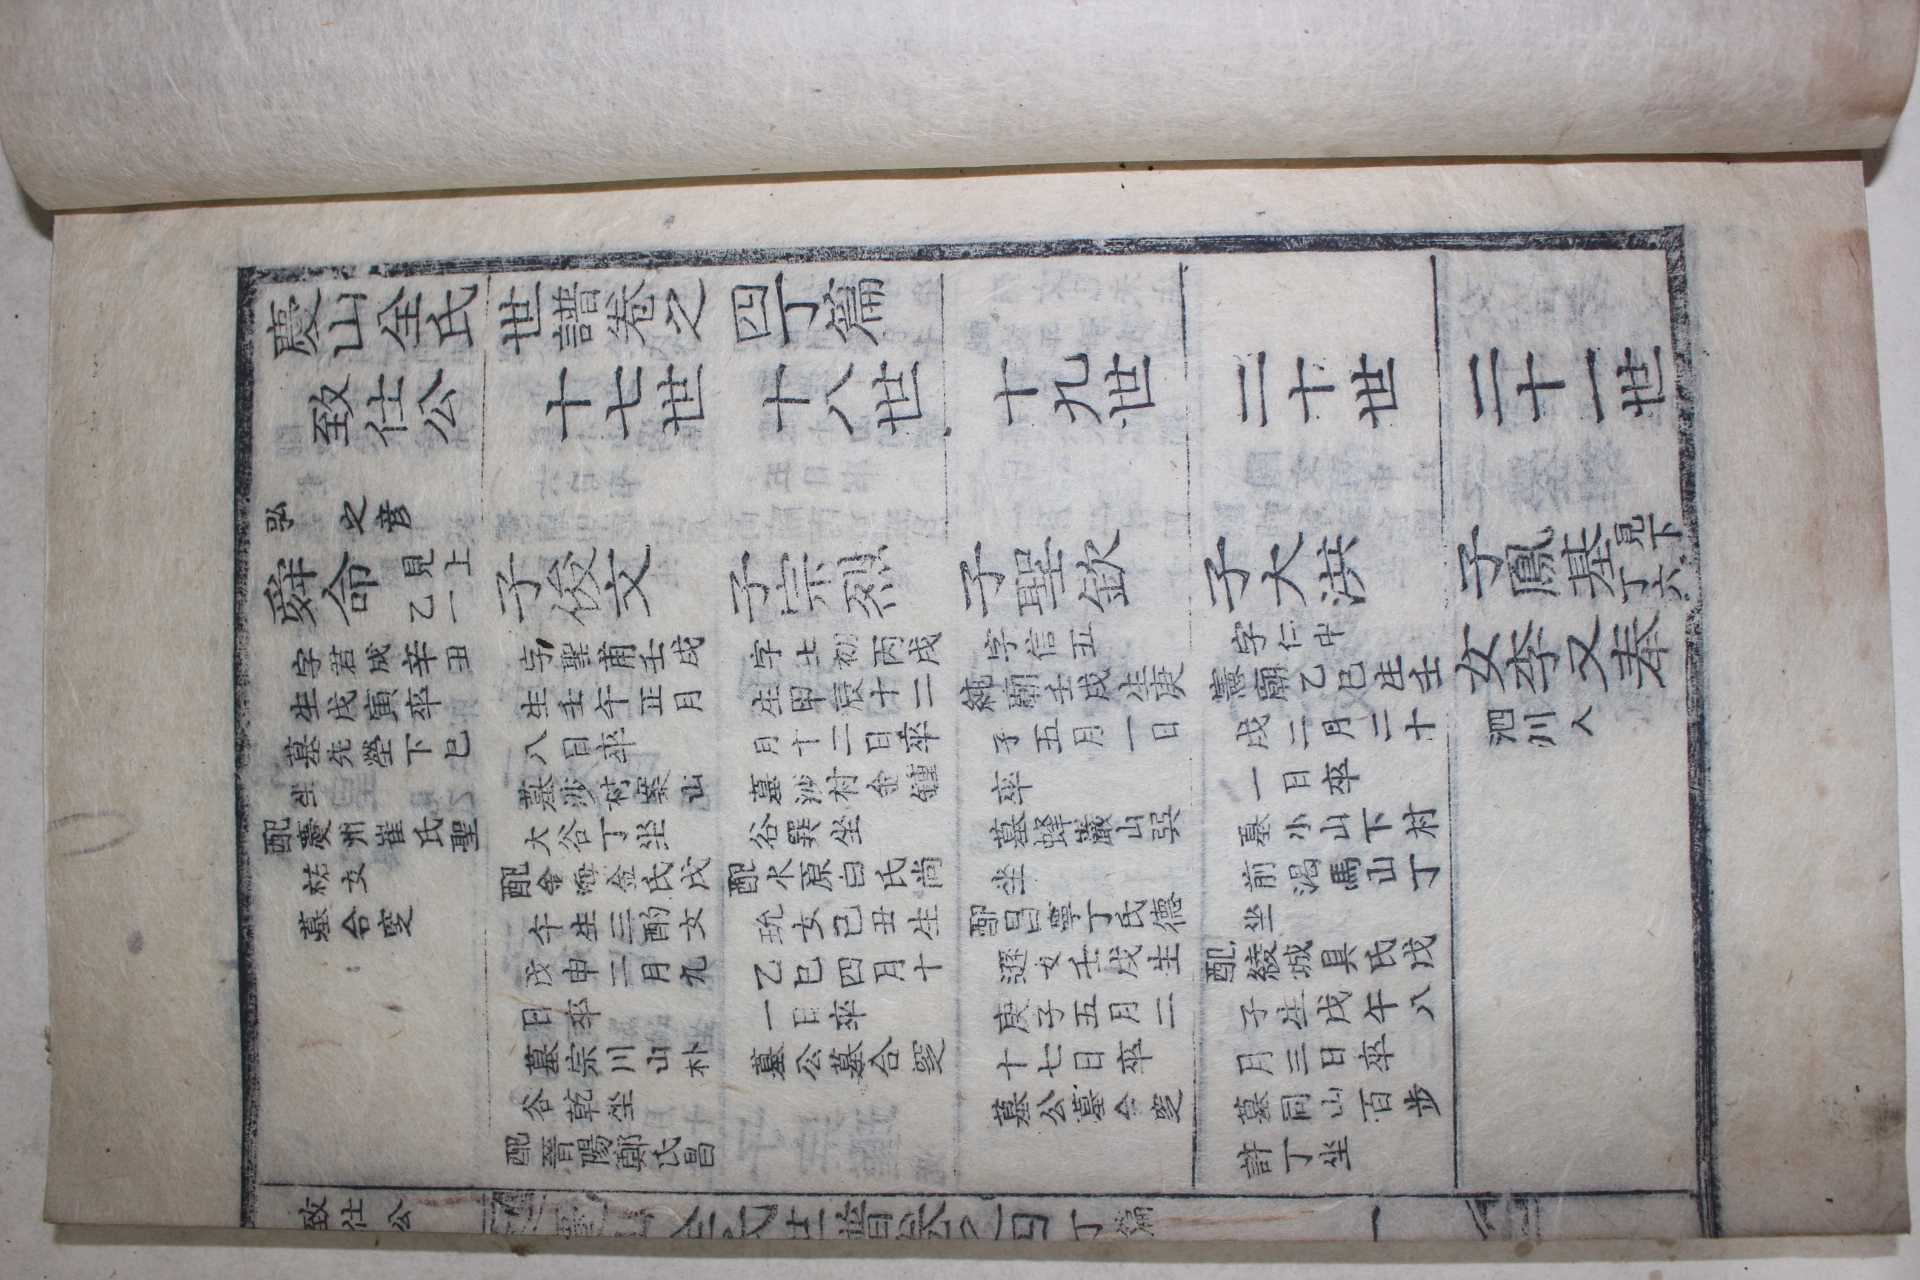 慶山全氏世譜卷之四丁篇
致仕公
弘 之彦
舜命 見上乙一
字君成辛丑
生戊寅卒
墓先塋下巳
坐
配慶州崔氏聖
祜女
墓合窆
十七世
子俊文
字聖甫壬戌
生壬午正月
八日卒
墓沙村案山
大谷丁坐
配金海金氏戊
午生三酌女
戊申二月九
日卒
墓宗川山朴
谷乾坐
配晉陽鄭氏昌
十八世
子宗烈
字士初丙戌
生甲辰十二
月十二日卒
墓沙村金鍾
谷巽坐
配水原白氏尚
玧女己丑生
乙巳四月十
一日卒
墓公墓合窆
十九世
子聖欽
字信五
純廟壬戌生庚
子五月一日
卒
墓蜂巖山巽
坐
配昌寧丁氏德
遜女壬戌生
庚子五月二
十七日卒
墓公墓合窆
二十世
子大洪
字仁中
憲廟乙巳生壬
戌二月二十
一日卒
墓小山下村
前渴馬山丁
坐
配綾城具氏戊
子生戊午八
月三日卒
墓同山百步
許丁坐
二十一世
子鳳基 見下丁六
女李又奉 泗川人
致仕公 全氏世譜卷之四丁篇 一